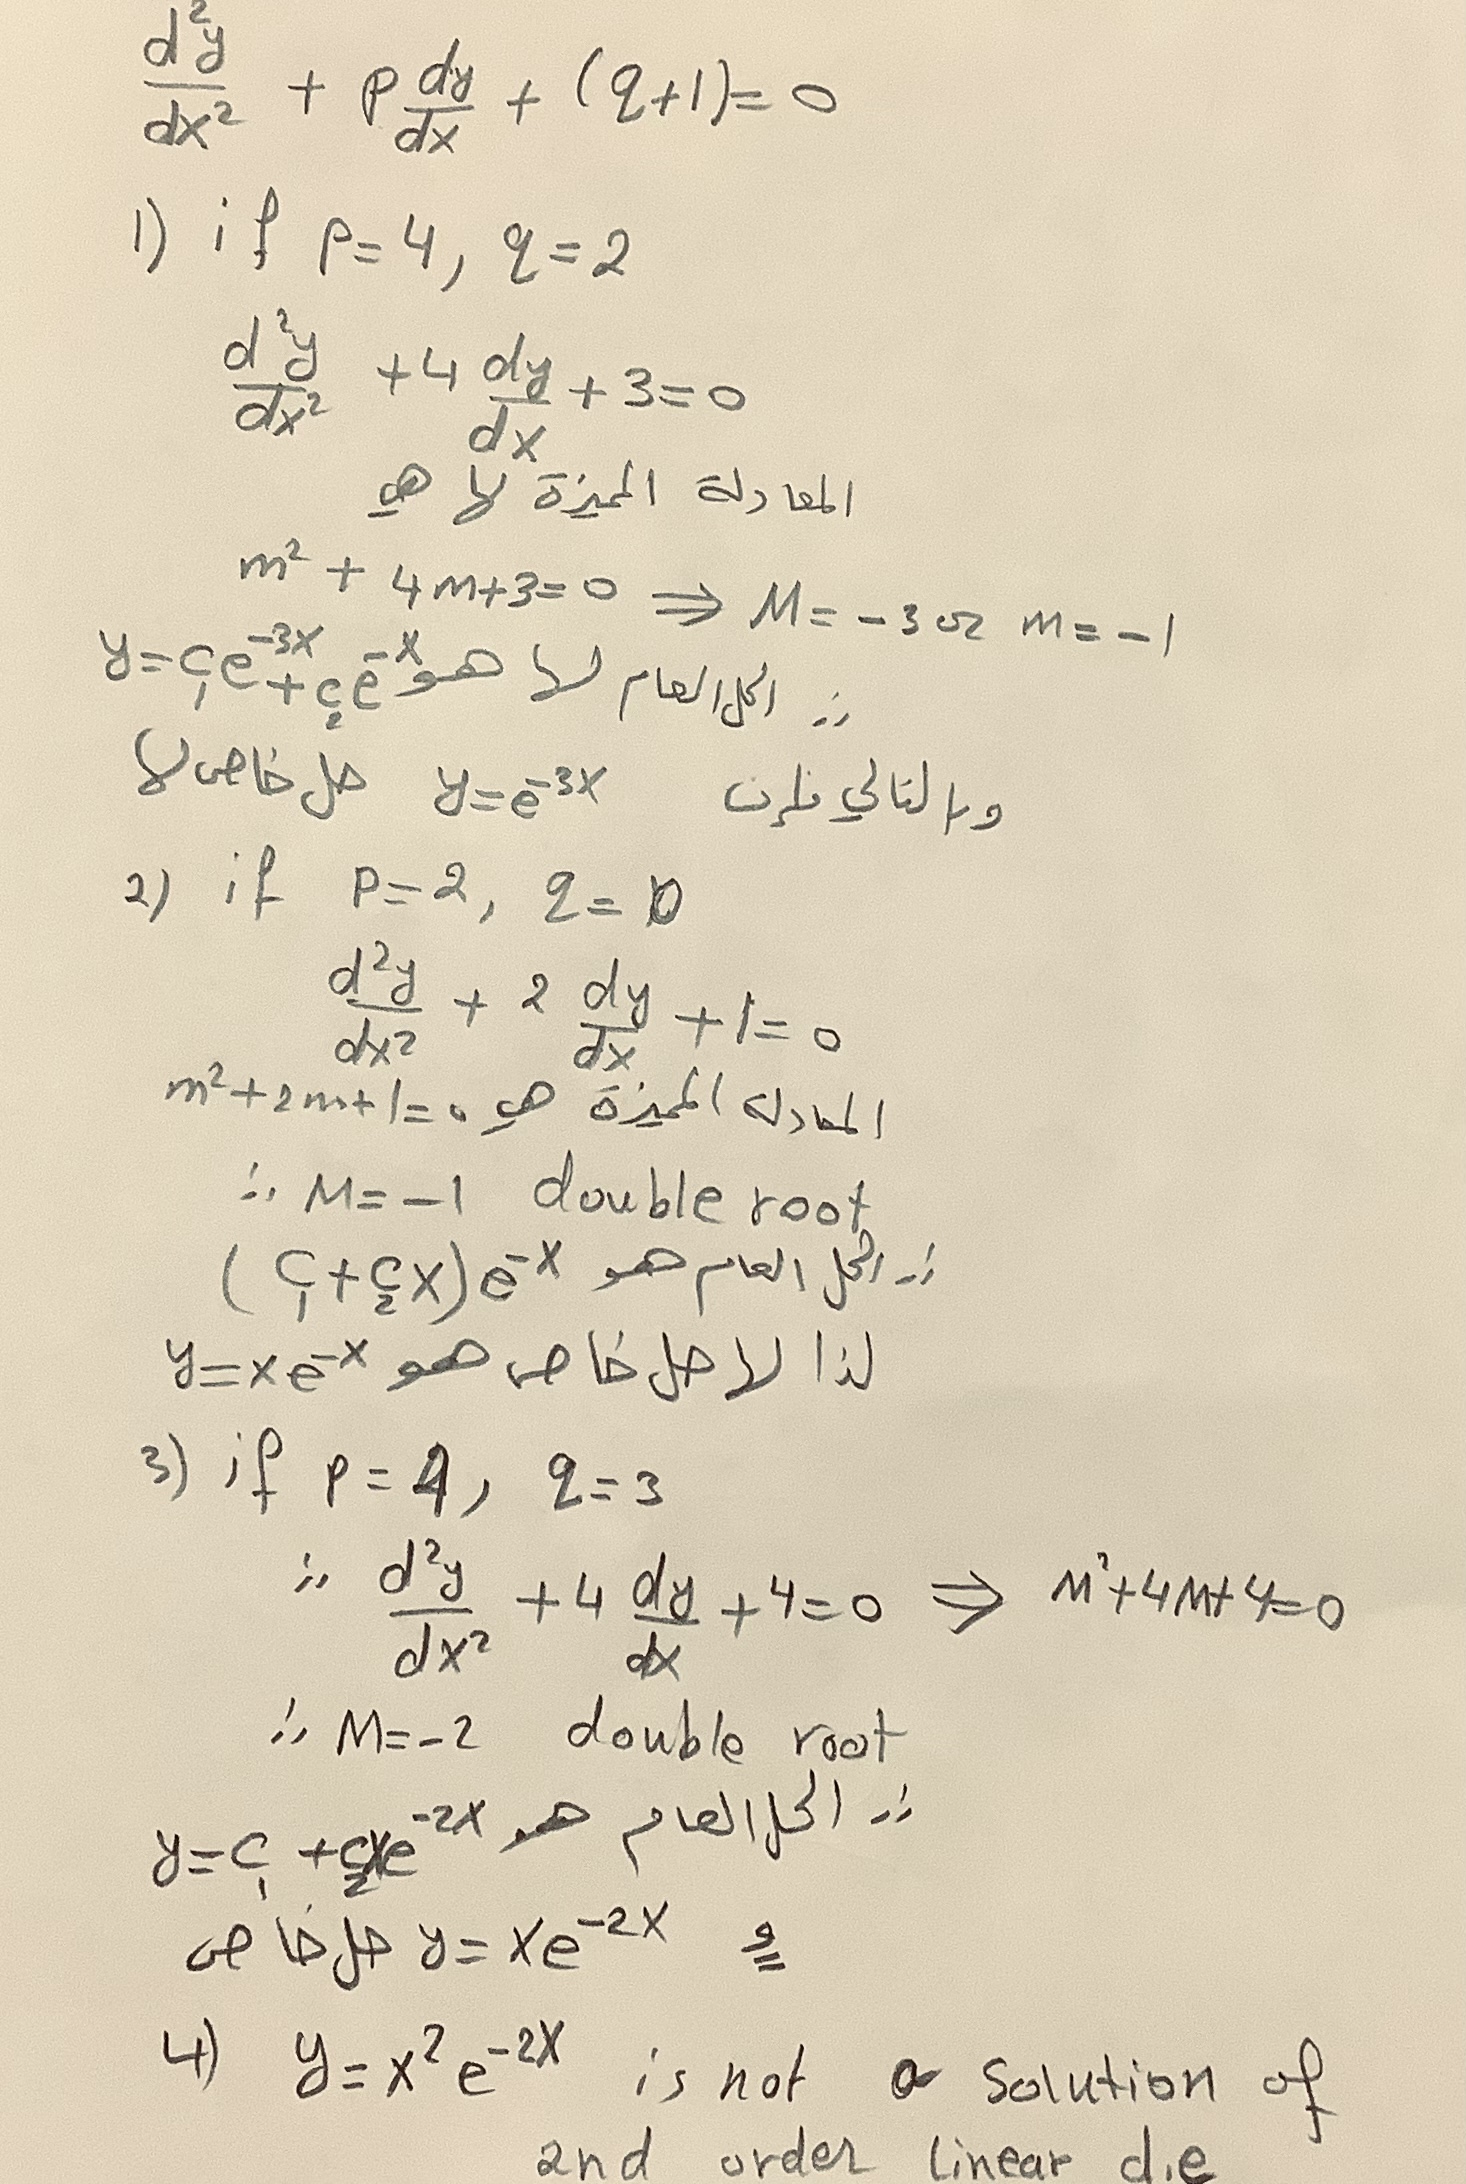 d²y/dx² + p dy/dx + (q+1) = 0
1) if p=4, q=2
d²y/dx² +4 dy/dx +3=0
المعادلة المميزة لها هي
m² + 4m+3=0 ⇒ M= -3 or m= -1
∴ الحل العام لها هو y=c₁e^-3x + c₂e^-x
وبالتالي فإن y=e^-3x حل خاص لها
2) if p=2, q=0
d²y/dx² + 2 dy/dx +1=0
المعادلة المميزة هي m²+2m+1=0
∴ M=-1 double root
∴ الحل العام هو (c₁+c₂x)e^-x
لذا لها حل خاص هو y=xe^-x
3) if p=4, q=3
∴ d²y/dx² +4 dy/dx +4=0 ⇒ M²+4M+4=0
∴ M=-2 double root
∴ الحل العام هو y=c₁ +c₂xe^-2x
و y=xe^-2x حل خاص
4) y=x²e^-2x is not a solution of
2nd order linear d.e